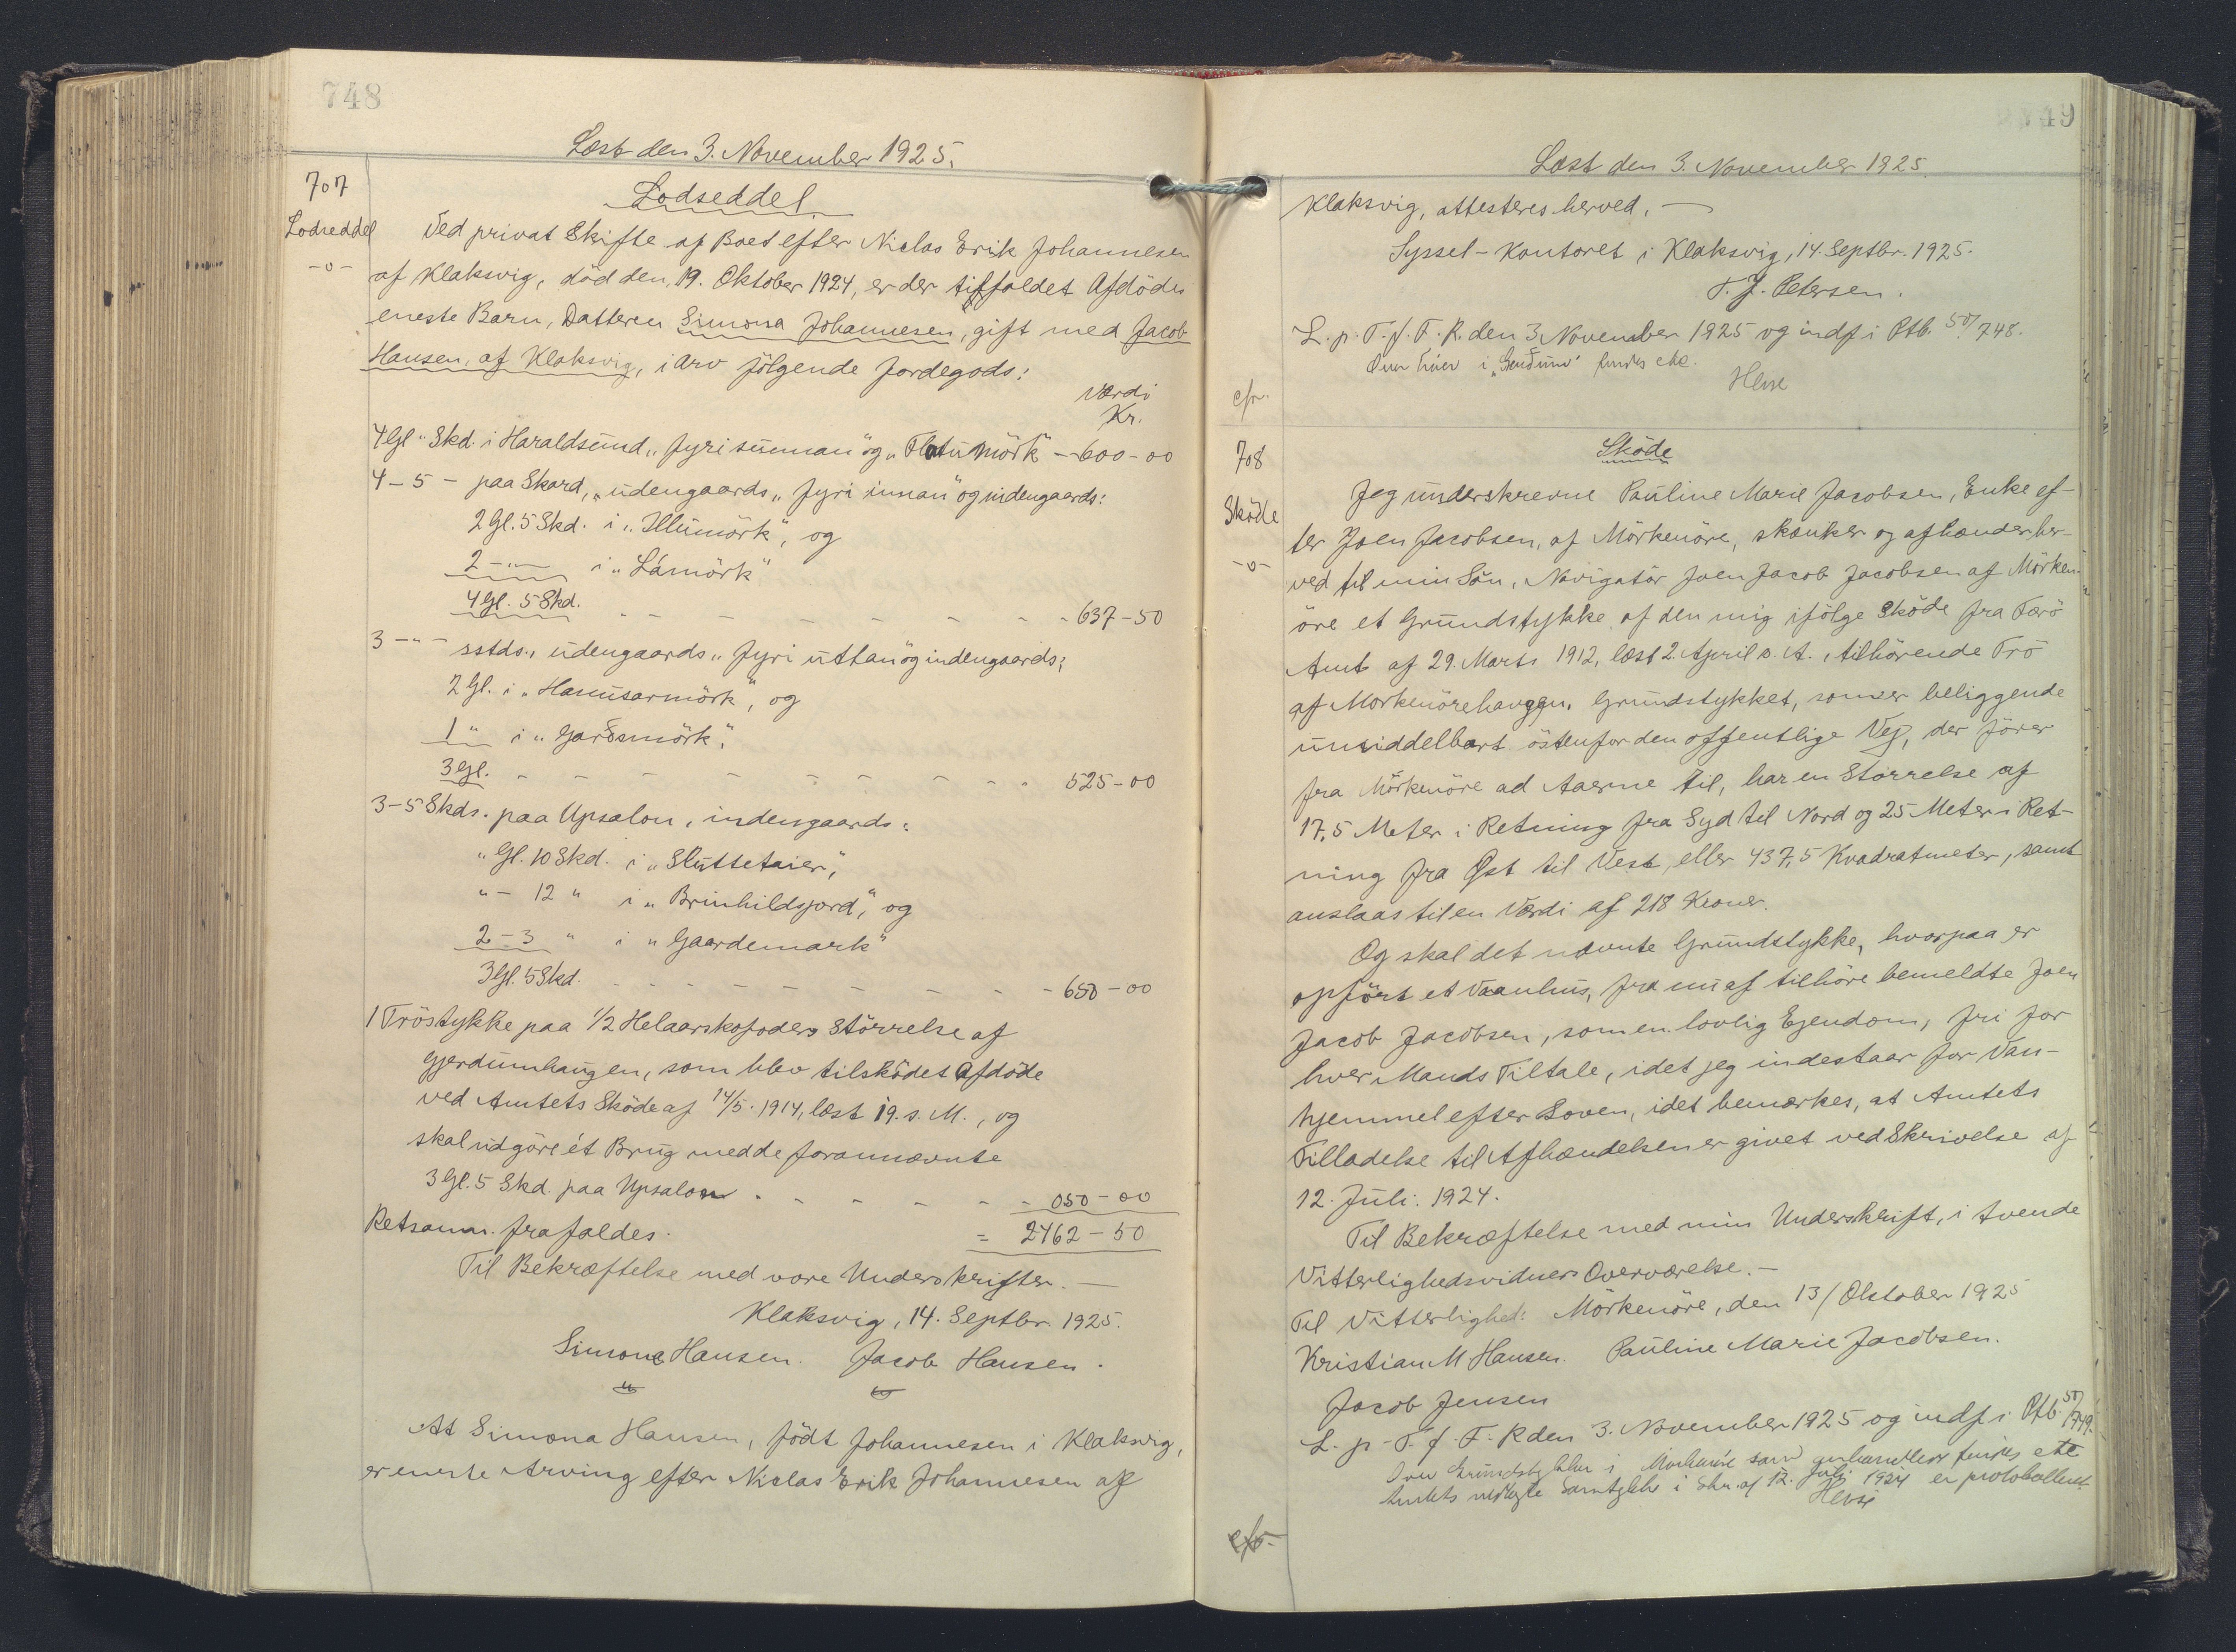 748
Læst den 3. November 1925.
707
Lodseddel
-o-
Lodseddel.
Ved privat Skifte af Boet efter Niclas Erik Johannesen
af Klaksvig, död den 19. Oktober 1924, er der tilfaldet Afdödes
eneste Barn, Datteren Simona Johannesen, gift med Jacob
Hansen, af Klaksvig, i Arv fölgende Jordegods:
Værdi
Kr.
4 Gl " Skd. i Haraldsund, "fyri sunnan" og "Flatumörk" - 600-00
4 - 5 - paa Skard, udengaards "fyri innan" og indengaards:
2 Gl. 5 Skd. i "Illumörk", og
2 - " - i "Lámörk"
4 Gl. 5 Skd. - - - - - - - 637-50
3 - " - sstds., udengaards "fyri uttan" og indengaards;
2 Gl. i "Hanusarmörk", og
1 " i "Garðsmörk".
3 Gl. - - - - - - - - - 525-00
3 - 5 Skds. paa Upsalon, indengaards:
" Gl. 10 Skd. i "Skuttetaier",
" - 12 " i "Brinhildsjord", og
2 - 3 " i "Gaardemark"
3 Gl. 5 Skd. - - - - - - - - 650-00
1 Tröstykke paa 1/2 Helaarskofoders Störrelse af
Gjerdumhaugen, som blev tilsködet Afdöde
ved Amtets Sköde af 14/5. 1914, læst 19. s. M., og
skal udgöre ét Brug med de forannævnte
3 Gl. 5 Skd. paa Upsalon - - - - - 050-00
Retsanm. frafaldes. = 2462-50
Til Bekræftelse med vore Underskrifter. —
Klaksvig, 14. Septbr. 1925.
Simona Hansen. Jacob Hansen.
At Simona Hansen, födt Johannesen i Klaksvig,
er eneste Arving efter Niclas Erik Johannesen af
749
Læst den 3. November 1925.
Klaksvig, attesteres herved. —
Syssel-Kontoret i Klaksvig, 14. Septbr. 1925.
T. J. Petersen.
L. p. T. f. F. R. den 3 November 1925 og indf i Ptb. 50/748.
i findes ikke.
cfr.
708
Sköde
-o-
Sköde
Jeg underskrevne Pauline Marie Jacobsen, Enke ef-
ter Joen Jacobsen, af Mörkenöre, skænker og afhænder her-
ved til min Sön, Navigatör Joen Jacob Jacobsen af Mörken-
öre et Grundstykke af den mig ifölge Sköde fra Færö
Amt af 29. Marts 1912, læst 2. April s. A., tilhörende Trö
af Morkenörehaugen. Grundstykket, som er beliggende
umiddelbart östenfor den offentlige Vej, der förer
fra Mörkenöre ad Aaerne til, har en Störrelse af
17,5 Meter i Retning fra Syd til Nord og 25 Meter i Ret-
ning fra Øst til Vest, eller 437,5 Kvadratmeter, samt
anslaas til en Værdi af 218 Kroner.
Og skal det nævnte Grundstykke, hvorpaa er
opfört et Vaanhus, fra nu af tilhöre bemeldte Joen
Jacob Jacobsen, som en lovlig Ejendom, fri for
hver Mands Tiltale, idet jeg indestaar for Van-
hjemmel efter Loven, idet bemærkes, at Amtets
Tilladelse til Afhændelsen er givet ved Skrivelse af
12. Juli. 1924.
Til Bekræftelse med min Underskrift, i tvende
Vitterlighedsvidners Overværelse. —
Til Vitterlighed: Mörkenöre, den 13/ Oktober 1925
Kristian M Hansen. Pauline Marie Jacobsen.
Jacob Jensen
L. p. T. f. F. R den 3. November 1925 og indf. i Ptb. 50/749.
i som findes ikke
Amtets Samtykke i Skr. af 12. Juli 1924 er protokolleret
cfr.